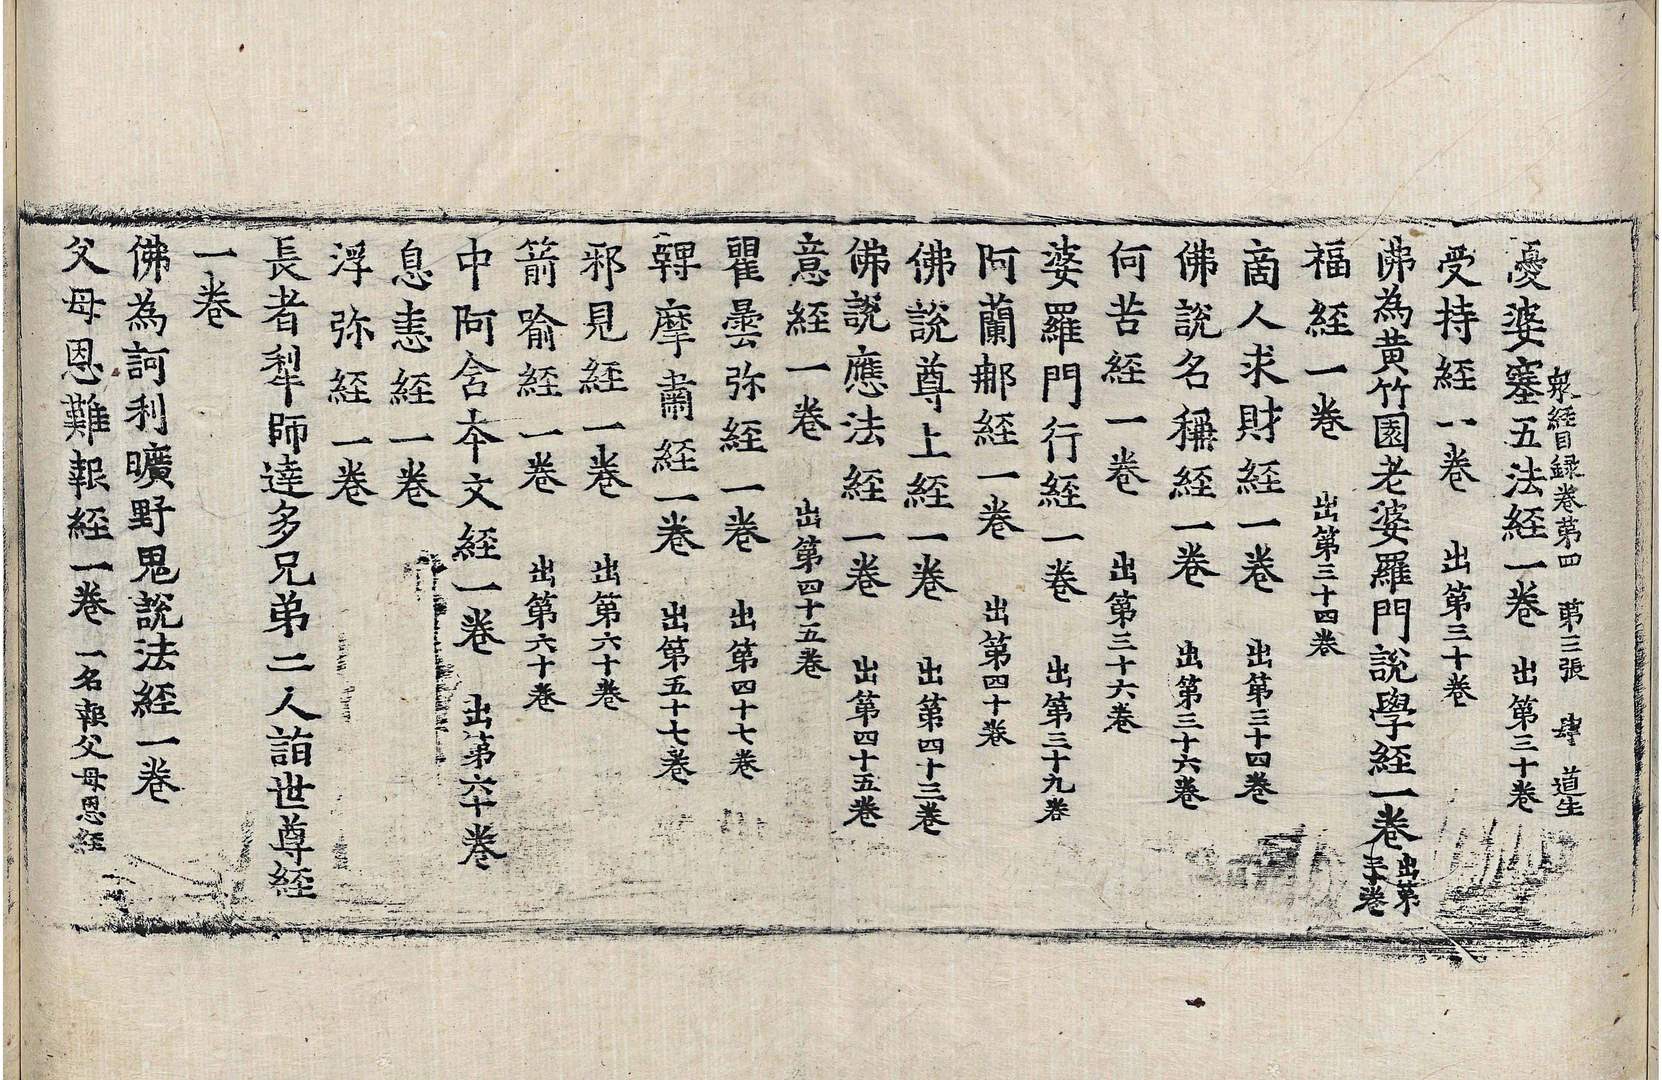 衆經目録卷第四　第三張　肆　道生
憂婆塞五法經一卷　出第三十卷
受持經一卷　出第三十卷
佛為黄竹園老婆羅門說學經一卷　出第三十卷
福經一卷　出第三十四卷
啇人求財經一卷　出第三十四卷
佛說名稱經一卷　出第三十六卷
何苦經一卷　出第三十六卷
婆羅門行經一卷　出第三十九卷
阿蘭那經一卷　出第四十卷
佛說尊上經一卷　出第四十三卷
佛說應法經一卷　出第四十五卷
意經一卷　出第四十五卷
瞿曇弥經一卷　出第四十七卷
鞞摩肅經一卷　出第五十七卷
邪見經一卷　出第六十卷
箭喻經一卷　出第六十卷
中阿含本文經一卷　出第六十卷
息恚經一卷
浮弥經一卷
長者犁師達多兄弟二人詣世尊經
一卷
佛為訶利曠野鬼說法經一卷
父母恩難報經一卷　一名報父母恩經